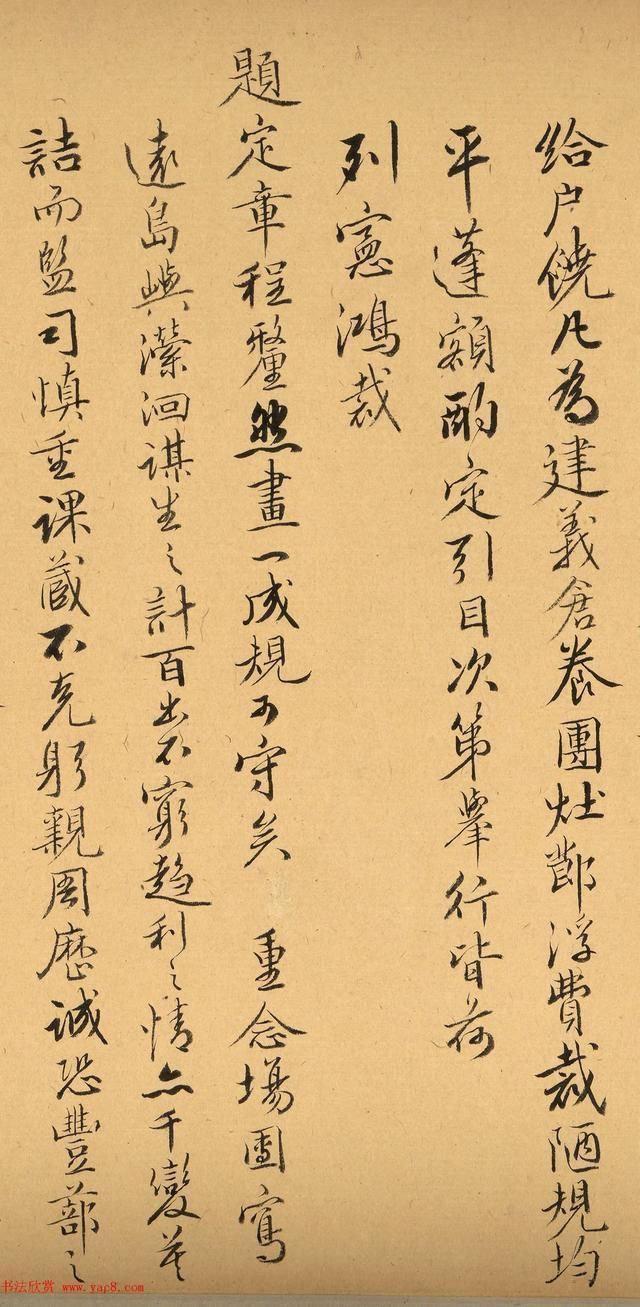 給户饒凡為建義倉養團灶鄼浮費裁陋規均
平蓬額酌定引目次第舉行皆荷
列憲鴻裁
題定章程釐然畫一成規可守矣 重念場團寫
遠島嶼瀠洄謀生之計百出不窮趨利之情亦千變莫
詰而監司慎重課藏不克躬親周歷誠恐豐蔀之
书法欣赏 www.yac8.com